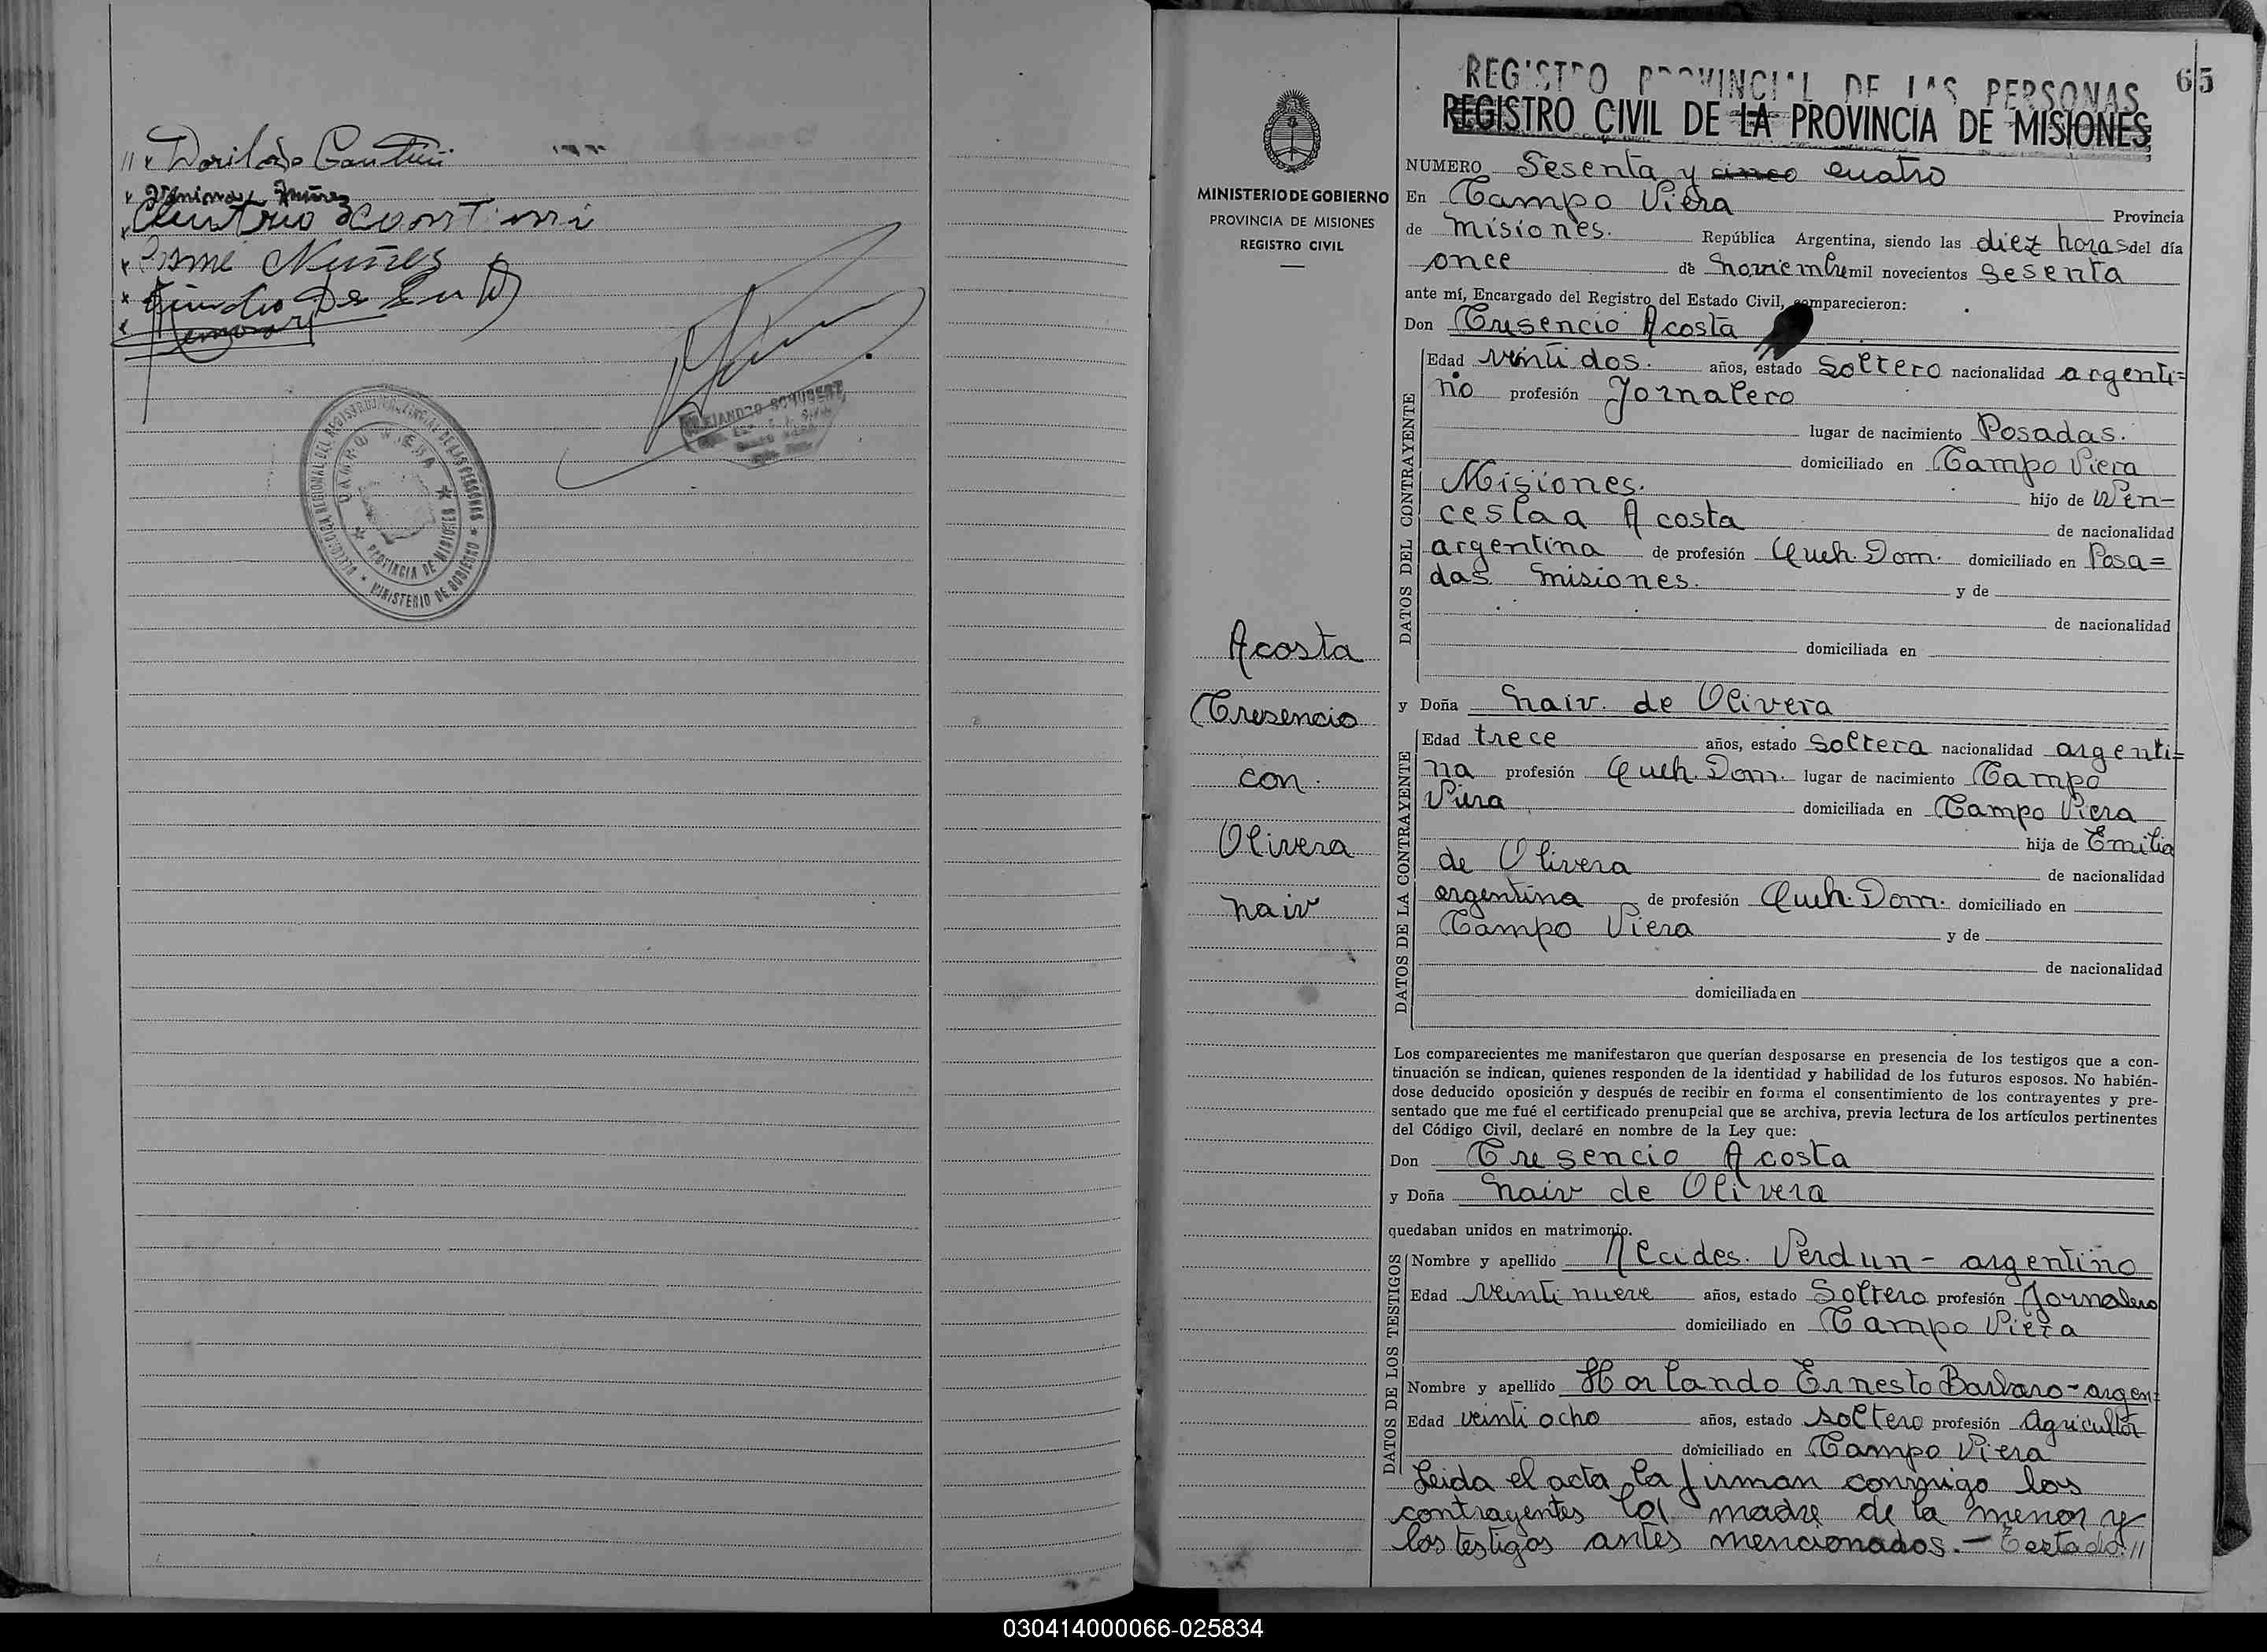 Nuñez
De
DIRECCION REGIONAL DEL REGISTRO PROVINCIAL DE LAS PERSONAS
CAMPO VIERA
PROVINCIA DE MISIONES
MINISTERIO DE GOBIERNO
ALEJANDRO SCHUBERT
65
REGISTRO PROVINCIAL DE LAS PERSONAS
REGISTRO CIVIL DE LA PROVINCIA DE MISIONES
MINISTERIO DE GOBIERNO
PROVINCIA DE MISIONES
REGISTRO CIVIL
Acosta
Cresencio
con
Olivera
Naiv
NUMERO Sesenta y cinco cuatro
En Campo Viera Provincia
de Misiones. República Argentina, siendo las diez horas del día
once de Noviembre mil novecientos sesenta
ante mí, Encargado del Registro del Estado Civil, comparecieron:
Don Cresencio Acosta
DATOS DEL CONTRAYENTE
Edad veintidos. años, estado Soltero nacionalidad argenti=
no profesión Jornalero
lugar de nacimiento Posadas.
domiciliado en Campo Viera
Misiones. hijo de Wen=
ceslaa Acosta de nacionalidad
argentina de profesión Queh. Dom. domiciliado en Posa=
das Misiones. y de
de nacionalidad
domiciliada en
y Doña Naiv. de Olivera
DATOS DE LA CONTRAYENTE
Edad trece años, estado Soltera nacionalidad argenti=
na profesión Queh. Dom. lugar de nacimiento Campo
Viera domiciliada en Campo Viera
hija de Emilia
de Olivera de nacionalidad
argentina de profesión Queh. Dom. domiciliado en
Campo Viera y de
de nacionalidad
domiciliada en
Los comparecientes me manifestaron que querían desposarse en presencia de los testigos que a con-
tinuación se indican, quienes responden de la identidad y habilidad de los futuros esposos. No habién-
dose deducido oposición y después de recibir en forma el consentimiento de los contrayentes y pre-
sentado que me fué el certificado prenupcial que se archiva, previa lectura de los artículos pertinentes
del Código Civil, declaré en nombre de la Ley que:
Don Cresencio Acosta
y Doña Naiv de Olivera
quedaban unidos en matrimonio.
DATOS DE LOS TESTIGOS
Nombre y apellido Alcides. Verdun - argentino
Edad veintinueve años, estado Soltero profesión Jornalero
domiciliado en Campo Viera
Nombre y apellido Horlando Ernesto Barbaro - argen=
Edad veintiocho años, estado soltero profesión Agricultor
domiciliado en Campo Viera
Leida el acta la firman conmigo los
contrayentes la madre de la menor y
los testigos antes mencionados. - Testado: //
030414000066-025834